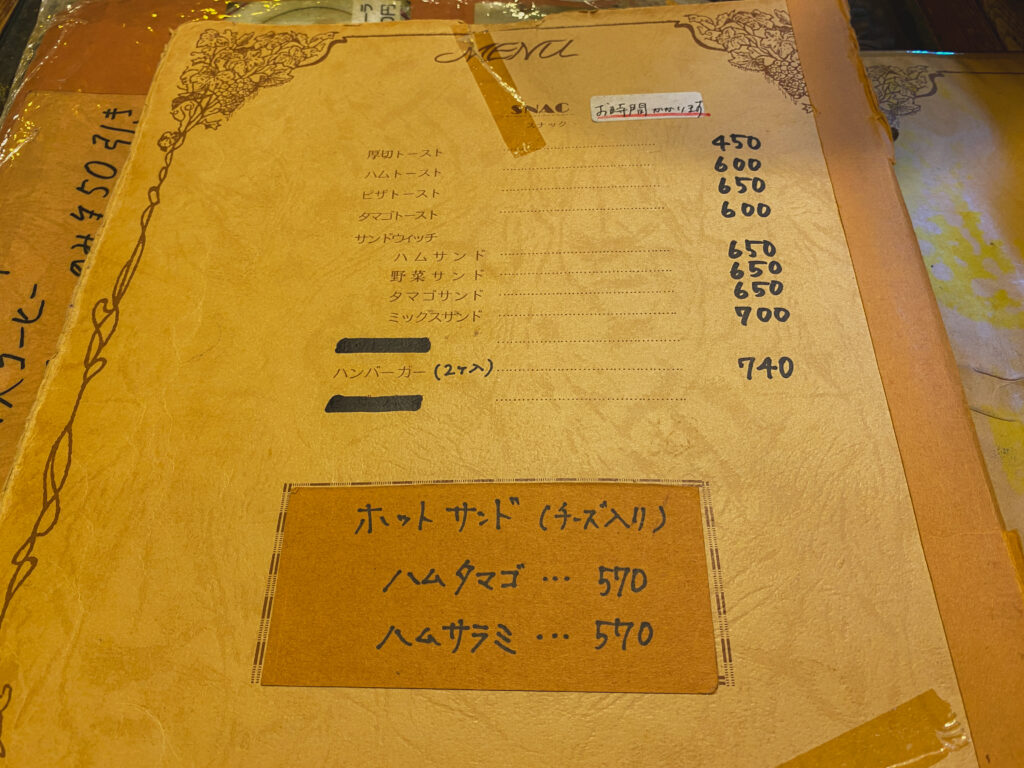 MENU
SNAC
お時間かかります
スナック
厚切トースト 450
ハムトースト 600
ピザトースト 650
タマゴトースト 600
サンドウィッチ
ハムサンド 650
野菜サンド 650
タマゴサンド 650
ミックスサンド 700
ハンバーガー (2ヶ入) 740
ホットサンド (チーズ入り)
ハムタマゴ … 570
ハムサラミ … 570
のみ ¥50引き
スコーヒー